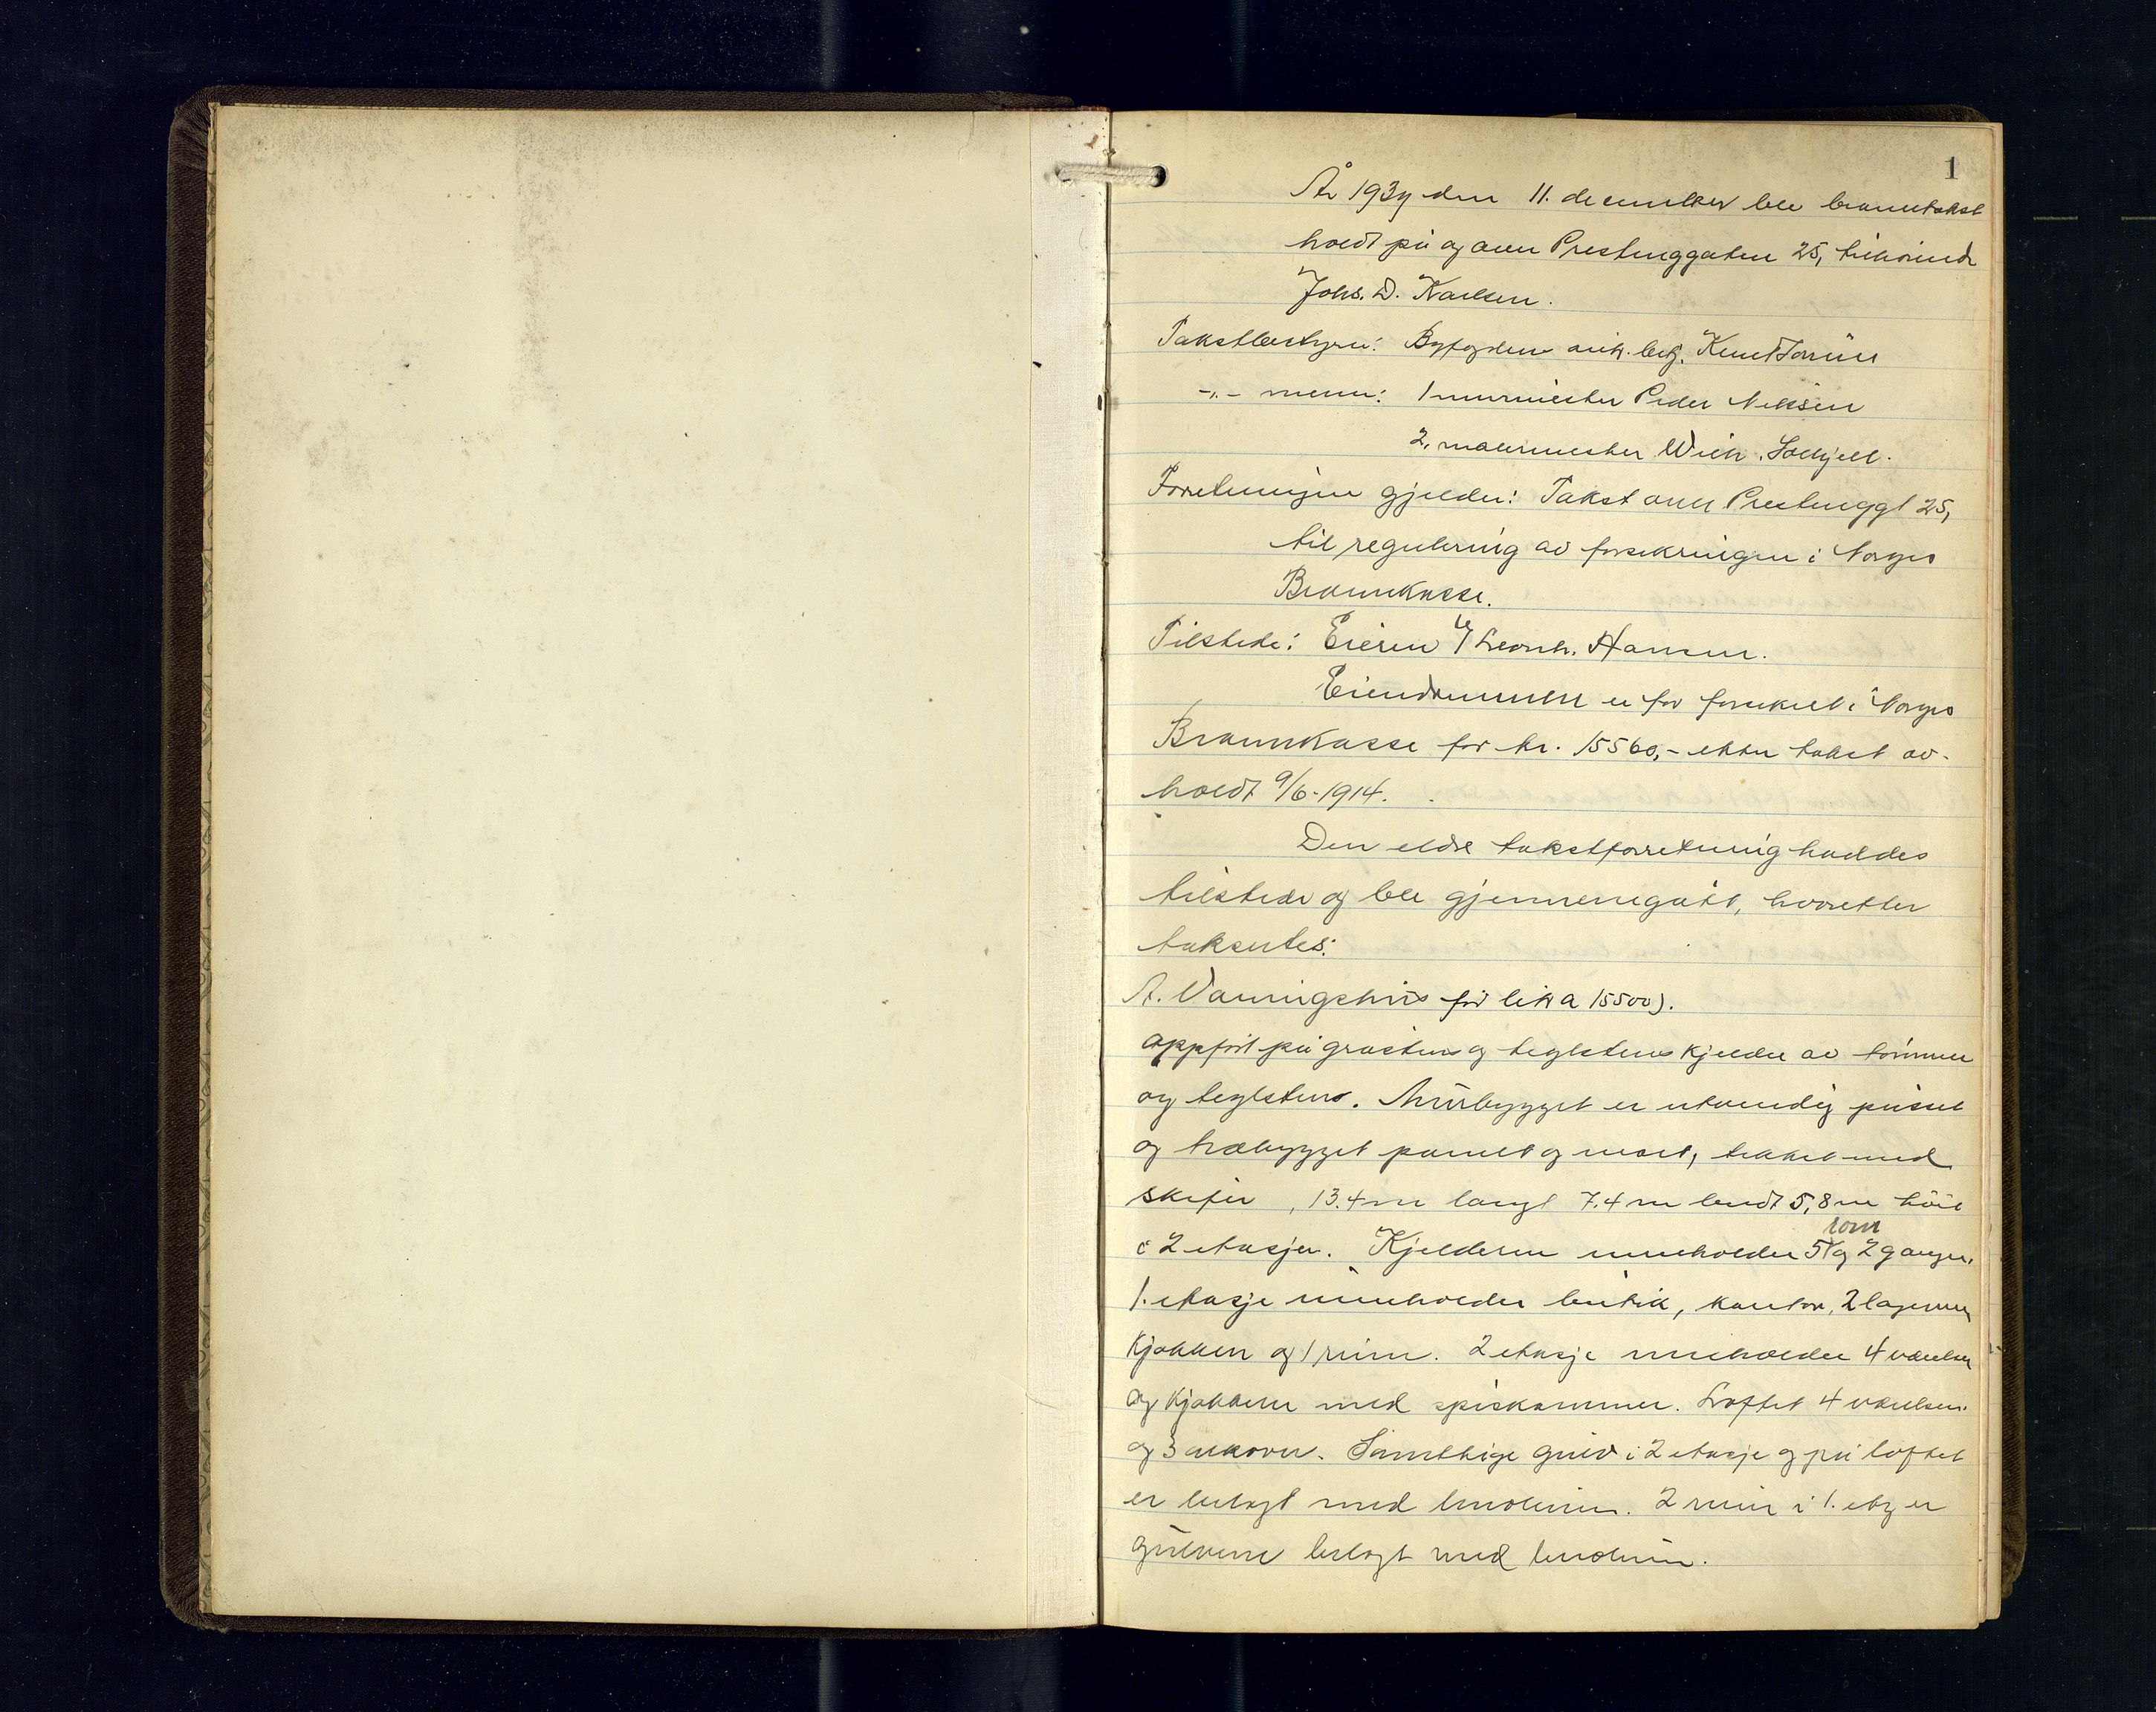 1
År 1934 den 11. december ble branntakst
holdt på og over Prestenggaten 25, tilhørende
Johs. D. Karlsen.
Takstbestyrer: Byfogden aut. betj. Knut
-"- menn: 1 murmester Peder Nilsen
2. malermester Wilh. Solhjell.
Forretningen gjelder: Takst over Prestenggt 25,
til regulering av forsikringen i Norges
Brannkasse.
Tilstede: Eieren v/ Leonh. Hansen.
Eiendommen er før forsikret i Norges
Brannkasse for kr. 15560,- etter takst av-
holdt 9/6-1914.
Den eldre takstforretning haddes
tilstede og ble gjennemgått, hvoretter
taksertes:
A. Våningshus (før litr a 15500).
oppført på gråstens og teglstens kjelder av tømmer
og teglstens. Murbygget er utvendig pusset
og træbygget panelt og malt, tekket med
skifer, 13.4 m langt 7.4 m bredt 5,8 m høit
i 2 etasjer. Kjelderen inneholder 5 rom og 2 ganger.
1. etasje inneholder butik, kontor, 2 lagerrum
kjøkken og 1 rum. 2 etasje inneholder 4 værelser
og kjøkken med spiskammer. Loftet 4 værelser
og 3 alkover. Samtlige gulv i 2 etasje og på loftet
er belagt med linoleum. 2 rum i 1. etg er
gulvene belagt med linoleum.